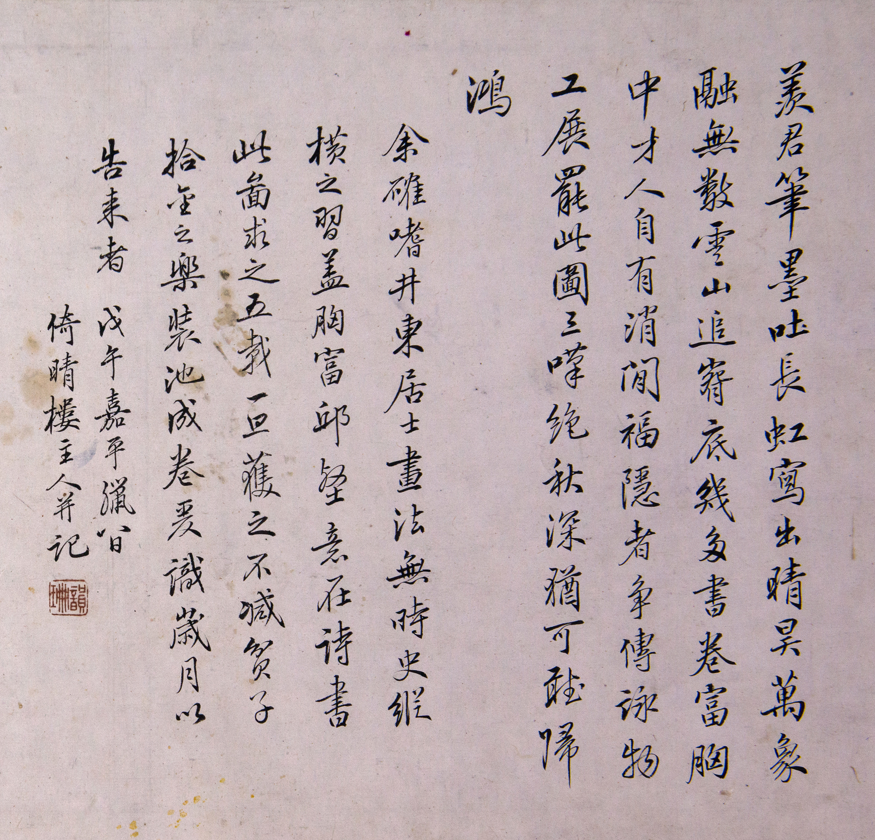 羨君筆墨吐長虹寫出晴昊萬象
融無數雲山追窮底幾多書卷富胸
中才人自有消閒福隱者爭傳詠物
工展罷此圖三嘆絶秋深猶可聽歸
鴻
余確嗜井東居士畫法無時史縱
橫之習蓋胸富邱壑意在詩書
此圖求之五載一旦獲之不減貧子
拾金之樂裝池成卷爰識歲月以
告来者 戊午嘉平臘八日
倚晴樓主人并記
韻珊